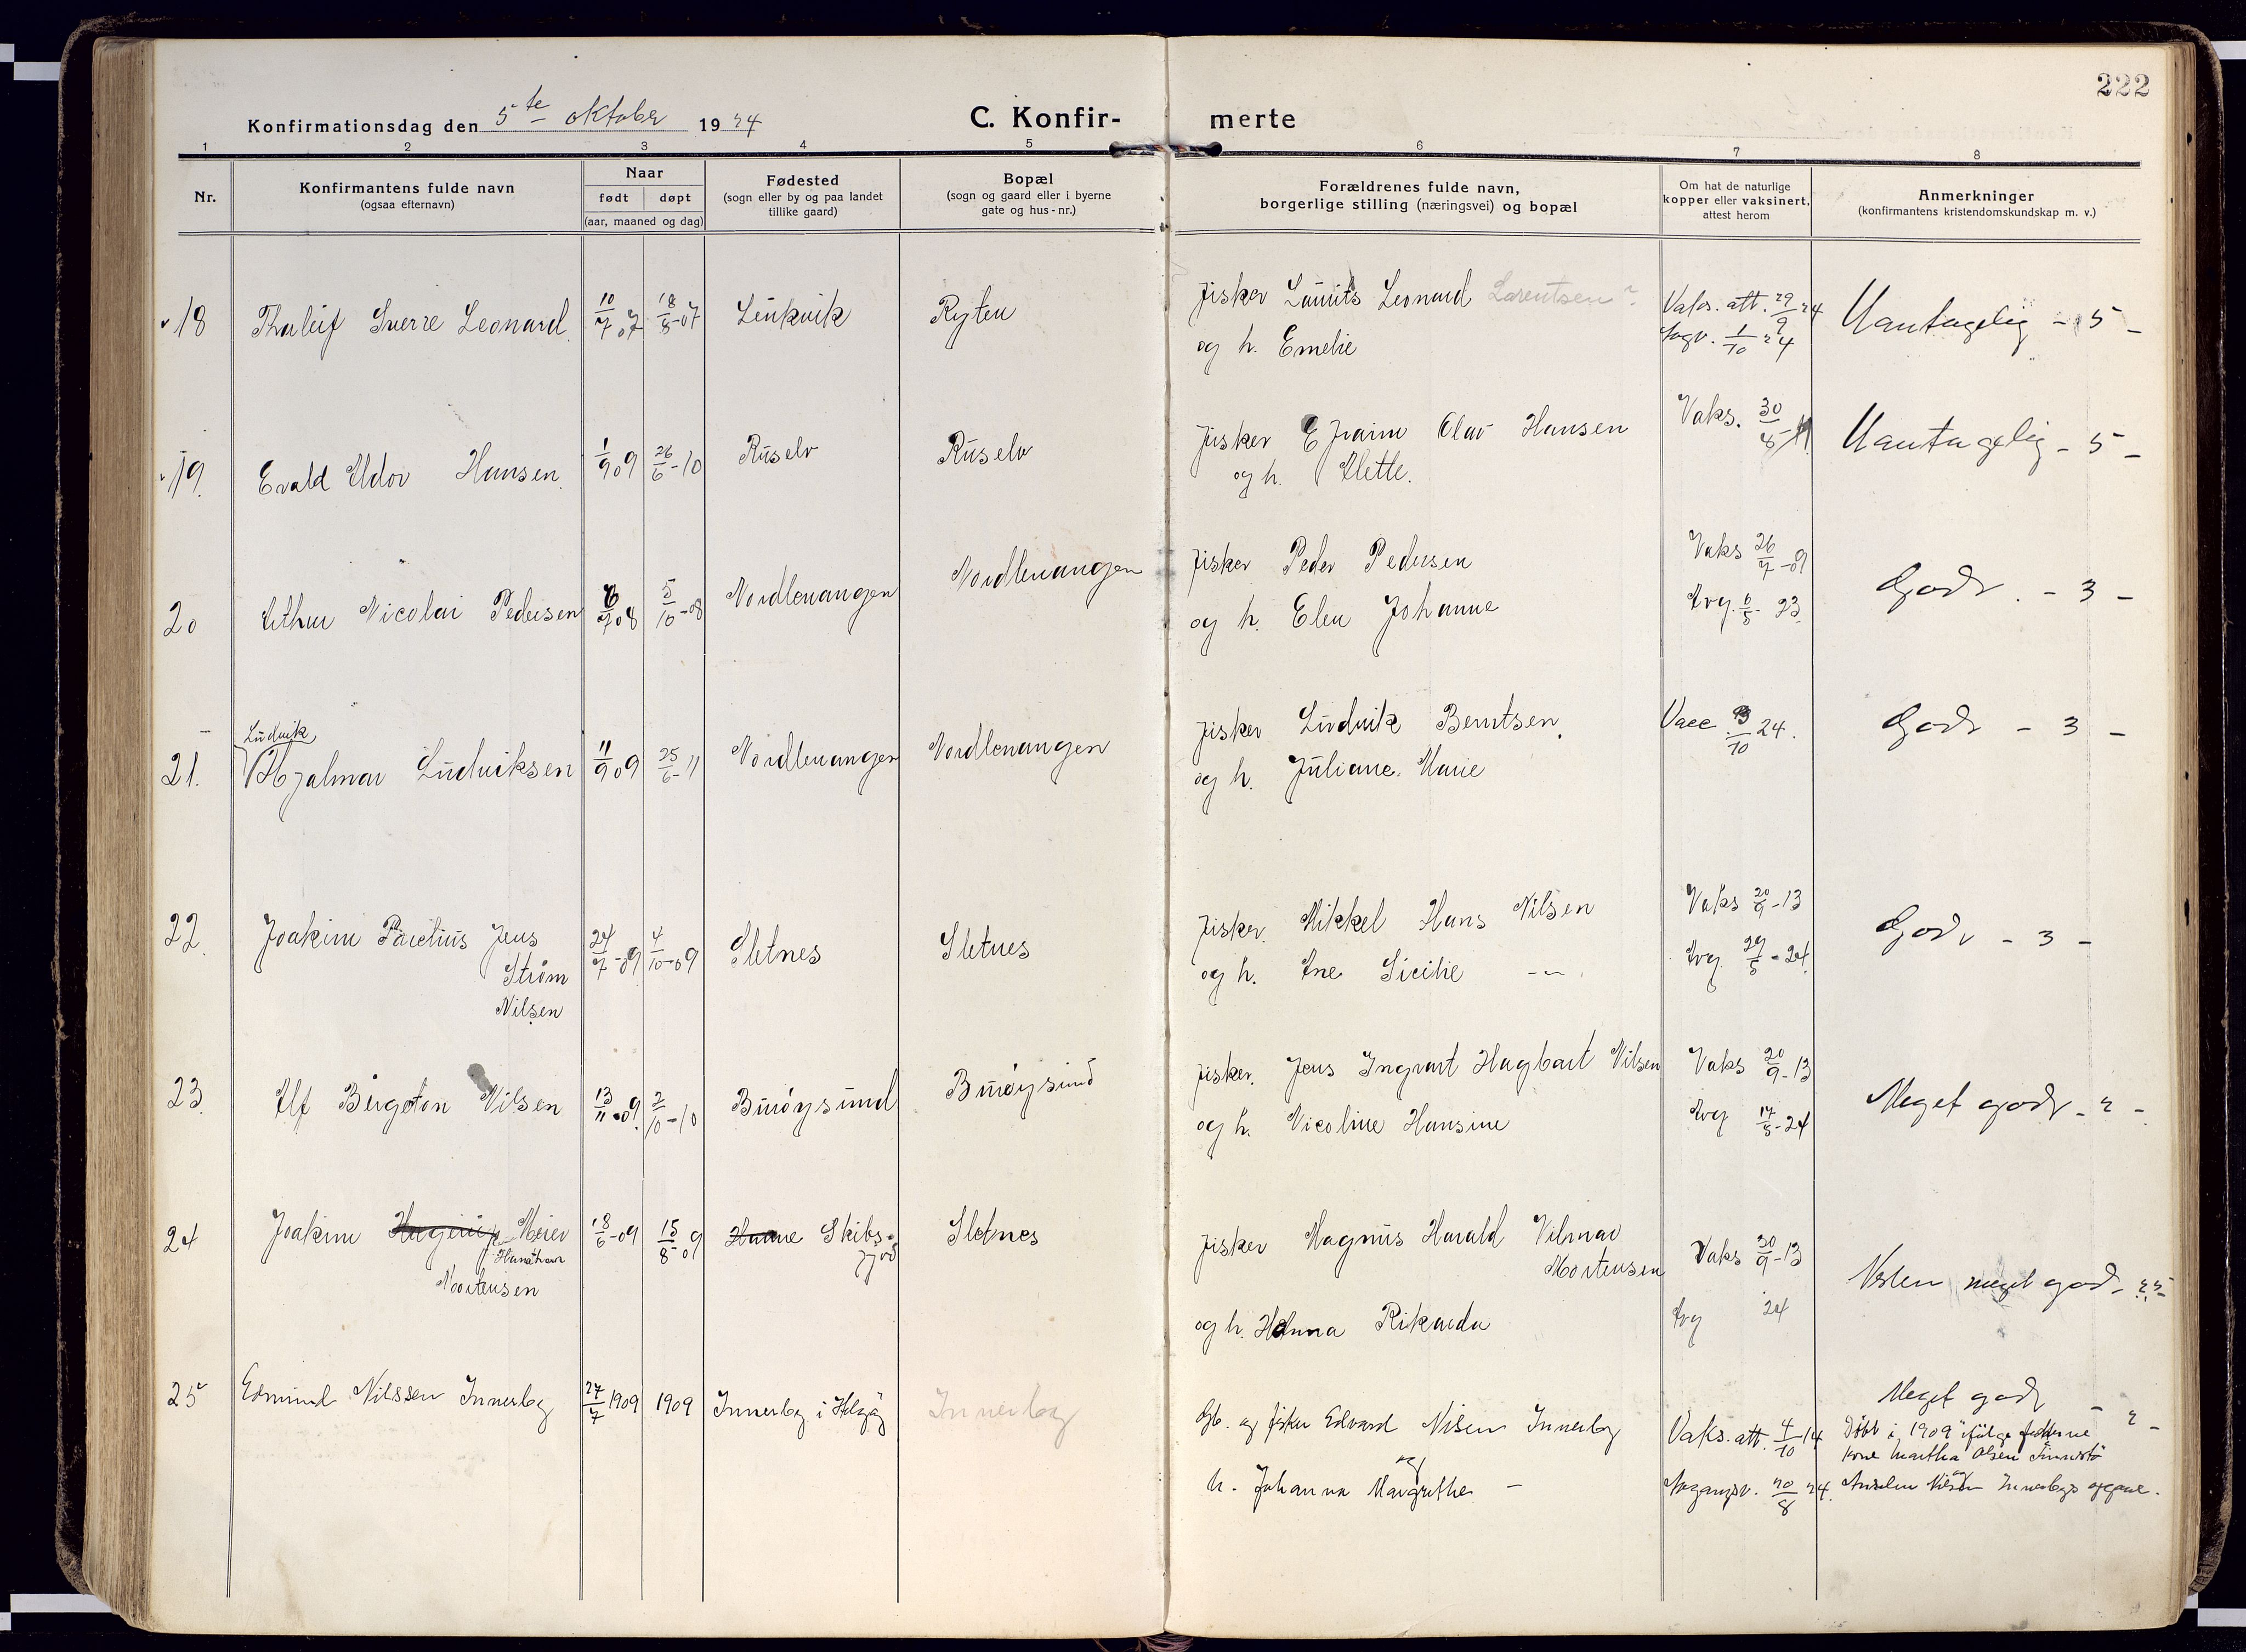 222
Konfirmationsdag den 5te oktober 1924
C. Konfir-merte
1 2 3 4 5 6 7 8
Nr.
Konfirmantens fulde navn
(ogsaa efternavn)
Naar
født døpt
(aar, maaned og dag)
Fødested
(sogn eller by og paa landet
tillike gaard)
Bopæl
(sogn og gaard eller i byerne
gate og hus-nr.)
Forældrenes fulde navn,
borgerlige stilling (næringsvei) og bopæl
Om hat de naturlige
kopper eller vaksinert,
attest herom
Anmerkninger
(konfirmantens kristendomskundskap m. v.)
18 Thorleif Sverre Leonard 10/7 07 18/8-07 Lenkvik Ryten fisker Laurits Leonard Lorentsen? Vaks. att. 29/9 24 Uantagelig - 5 -
og h. Emelie 1/10 24
19. Evald Aldor Hansen 1/9 09 26/6-10 Ruselv Ruselv fisker Efraim Olav Hansen Vaks. 30/8-11 Uantagelig - 5 -
og h. Alette.
20 Arthur Nicolai Pedersen 6/7 08 5/10-08 Nordlenangen Nordlenangen fisker Peder Pedersen Vaks 26/7-09 Godt. - 3 -
og h. Elen Johanne Avg. 6/5-23.
Ludvik
21. Hjalmar Ludviksen 11/9 09 25/6-11 Nordlenangen Nordlenangen fisker Ludvik Berntsen Vacc 3/10 24. Godt - 3 -
og h. Juliane Marie
22. Joakim Parelius Jens 24/7-09 4/10-09 Sletnes Sletnes fisker Mikkel Hans Nilsen Vaks 20/9-13 Godt - 3 -
Strøm og h. Ane Sicilie -"- Avg 29/5-24.
Nilsen
23. Alf Bergeton Nilsen 13/11-09. 2/10-10 Burøysund Burøysund fisker Jens Ingvart Hagbart Nilsen Vaks 20/9-13 Meget godt - 2 -
og h. Nicoline Hansine Avg 17/5-24
24 Joakim Meier 18/6-09 15/8-09 Skibs- Sletnes fisker Magnus Harald Vilmar Vaks 20/9-13
fjord
Mortensen Mortensen
Nesten meget god -
og h. Hanna Rikarda Avg 24
25 Edmund Nilssen Innerby 27/7 1909 1909 Innerby i Helgøy Innerby Gb. og fisker Edvard Nilsen Innerby Vaks. att. 4/10 14 Meget godt - 2 -
og
h. Johanna Margrethe - Avgangsv. 20/8 24.
Døbt i 1909 ifølge fadderne
kone Martha Olsen
og
Innerbys opgave.